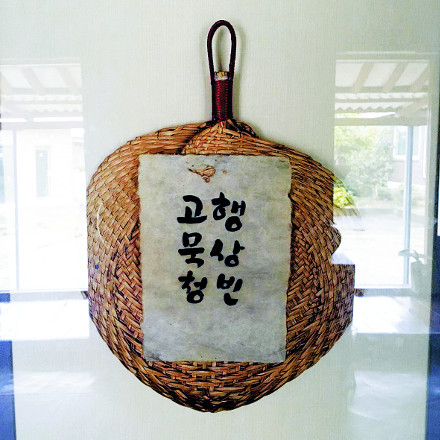 고행
묵상
청빈